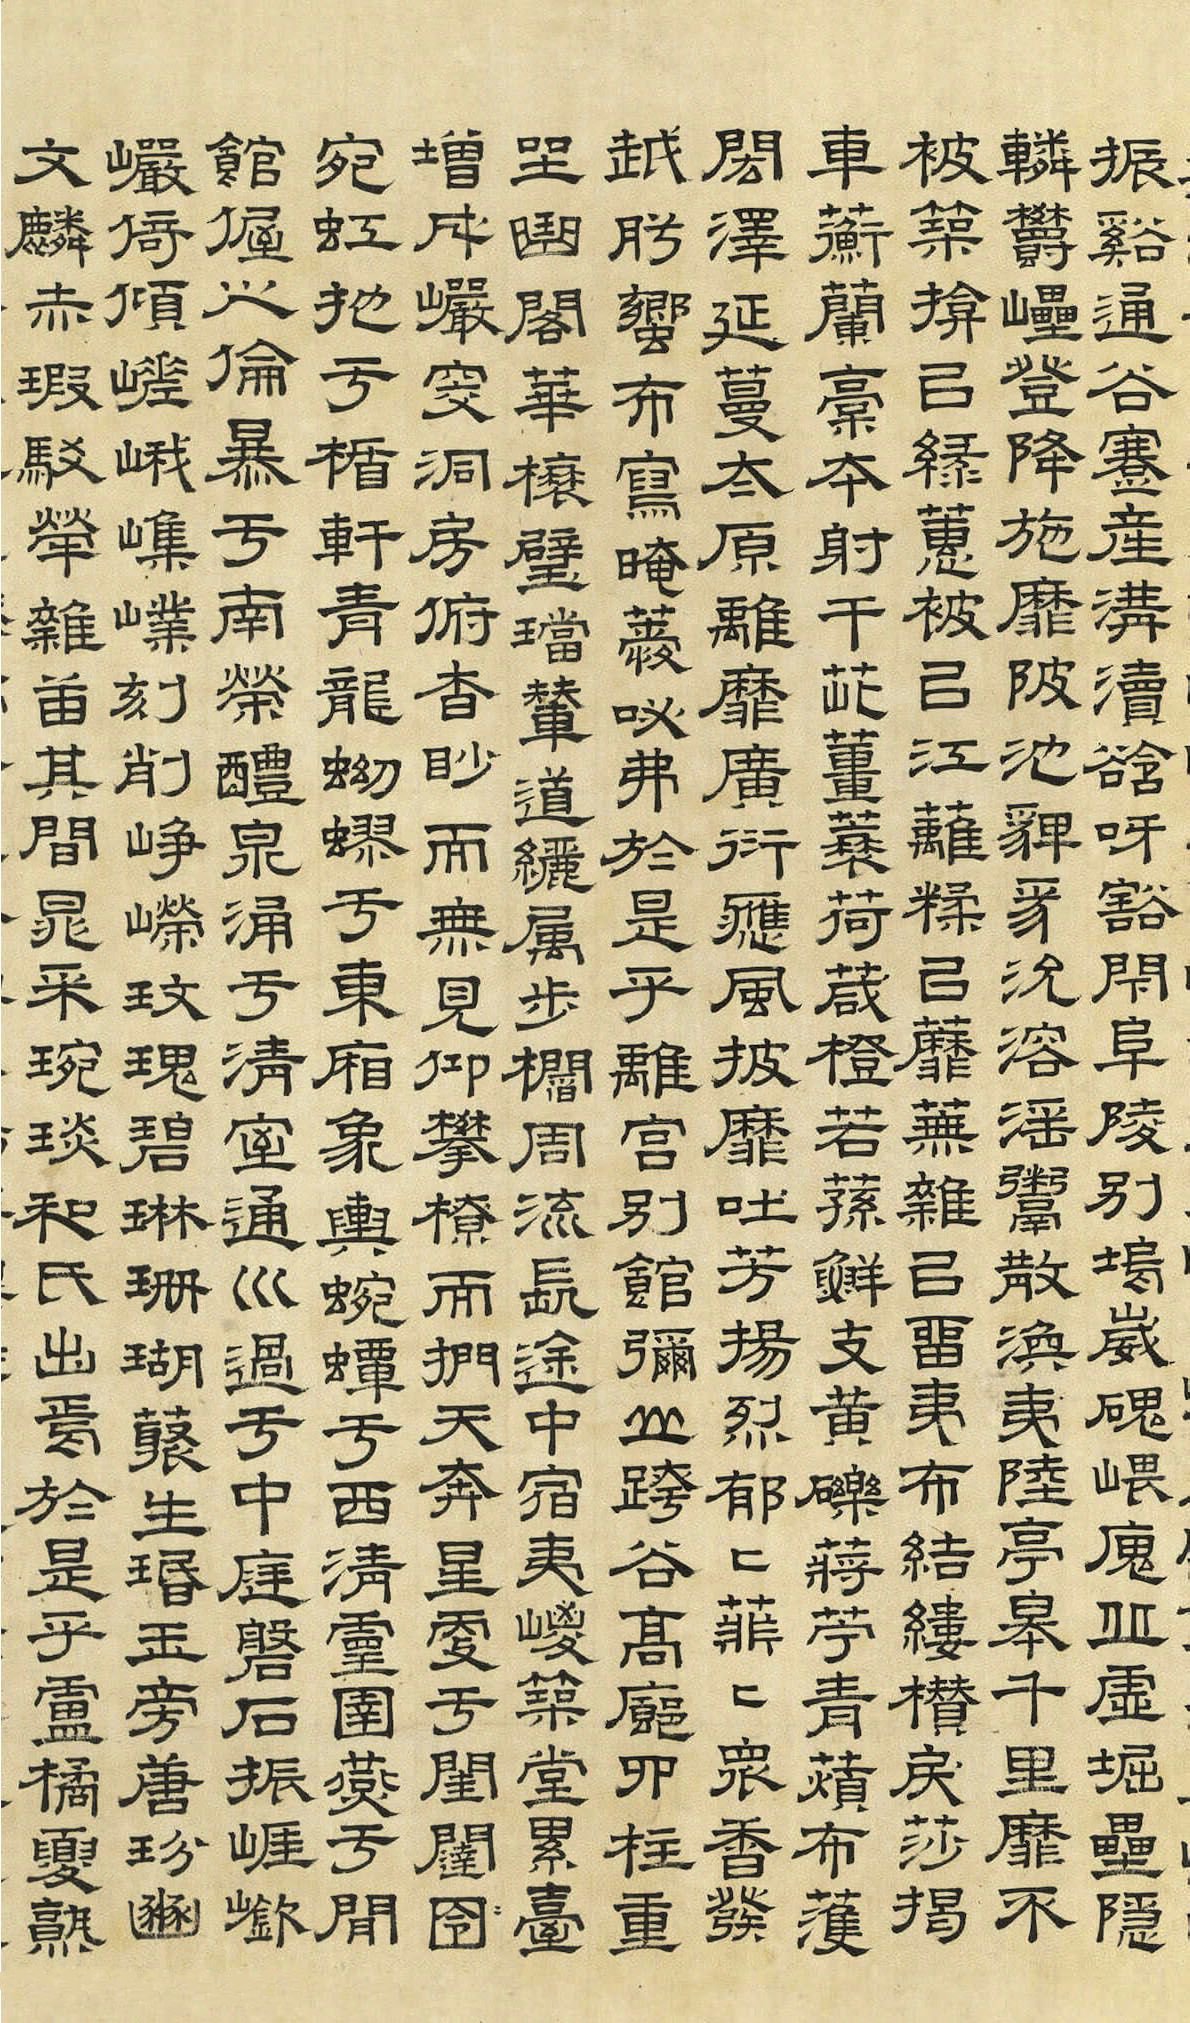 振谿通谷蹇産溝瀆谽呀豁閜阜陵別塢崴磈嵔廆丘虛堀礨隱
轔鬱㠥登降施靡陂池貏豸沇溶淫鬻散渙夷陸亭皋千里靡不
被築揜㠯綠蕙被㠯江蘺糅㠯蘪蕪雜㠯畱夷布結縷欑戾莎揭
車蘅蘭稾本射干茈薑蘘荷葴橙若蓀鮮支黃礫蔣芧青薠布濩
閎澤延蔓太原離靡廣衍應風披靡吐芳揚烈郁〻菲〻衆香發
越肸蠁布寫晻薆咇茀於是乎離宮別館彌山跨谷高廊四柱重
坐曲閣華榱璧璫輦道纚屬步櫩周流長途中宿夷嵕築堂累臺
增成巖窔洞房俯杳眇而無見仰攀橑而捫天奔星更于閨闥
宛虹扡于楯軒青龍蚴蟉于東廂象輿蜿蟬于西清靈圉燕于閒
館偓佺之倫暴于南榮醴泉涌于清室通川過于中庭磐石振崖嶔
巖倚傾嵯峨嶕嶫刻削崢嶸玫瑰碧琳珊瑚叢生琘玉旁唐玢豳
文鱗赤瑕駁犖雜臿其間鼂采琬琰和氏出焉於是乎盧橘夏熟